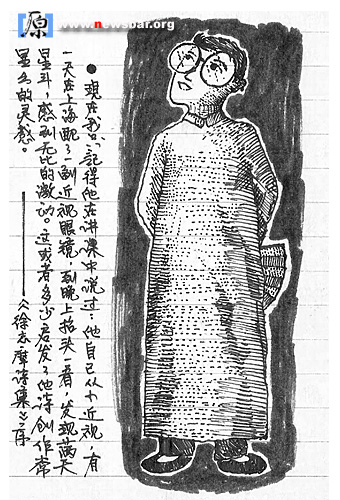 原 www.newsbar.org
●现在我只记得他在讲课中说过：他自己从小近视，有
一天在上海配了一副近视眼镜，到晚上抬头一看，发现满天
星斗，感到无比的激动。这或者多少启发了他诗创作
星 的灵感。
——《徐志摩诗集》序